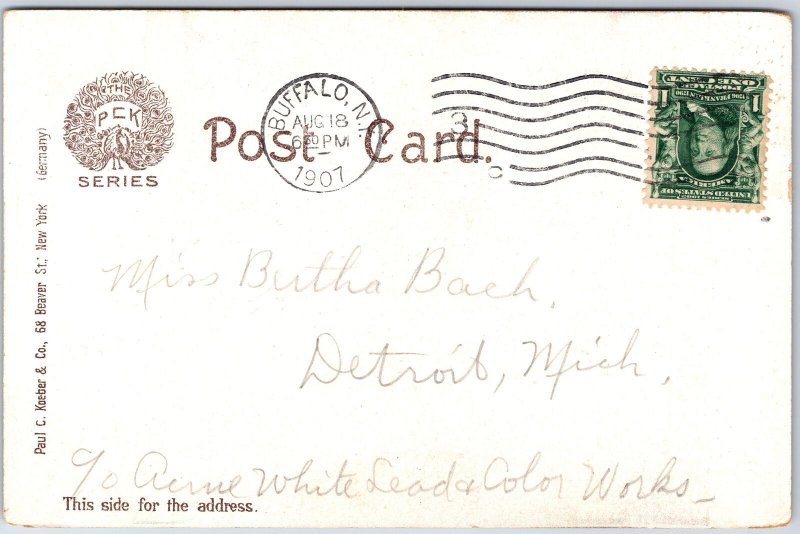 THE
PCK
SERIES
Post Card.
BUFFALO, N.Y.
AUG 18
6 30 PM
1907
3
C
ONE CENT
POSTAGE
1706 FRANKLIN 1790
1 1
UNITED STATES OF
AMERICA
SERIES 1902
Miss Bertha Bach,
Detroit, Mich,
c/o Acme White Lead & Color Works_
This side for the address.
Paul C. Koeber & Co., 68 Beaver St., New York (Germany)